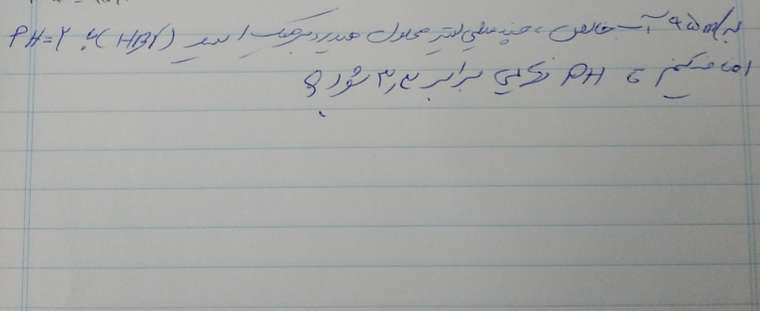 به آب خالص، چند میلی لیتر محلول هیدروبرمیک اسید (HBr) با PH=۲
اضافه کنیم تا PH نهایی برابر ۳٫۴ شود؟